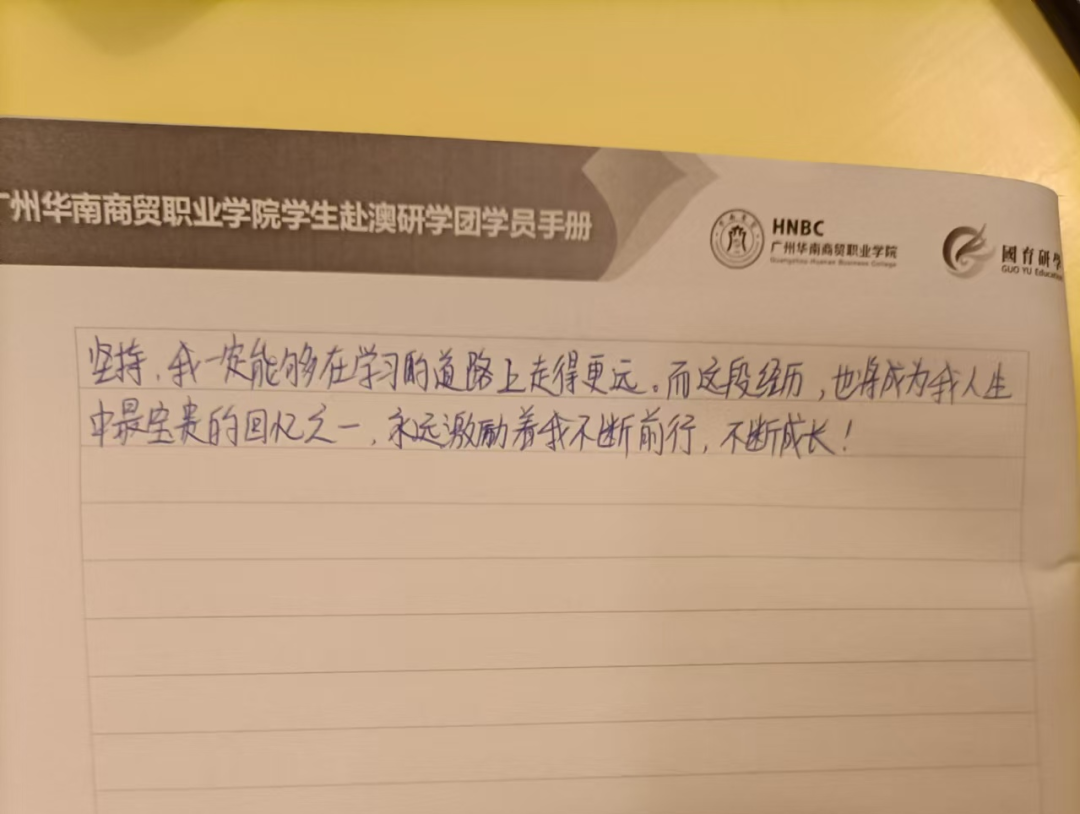 广州华南商贸职业学院学生赴澳研学团学员手册
HNBC
广州华南商贸职业学院
Guangzhou Huanan Business College
國育研学
GUO YU Education
坚持，我一定能够在学习的道路上走得更远。而这段经历，也将成为我人生
中最宝贵的回忆之一，永远激励着我不断前行，不断成长！